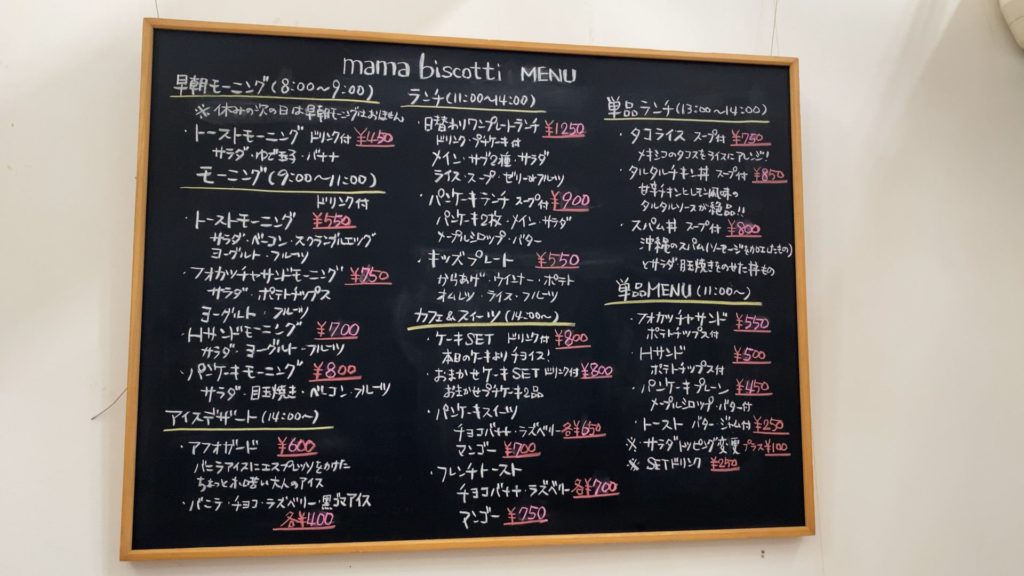 mama biscotti MENU
早朝モーニング(8:00〜9:00)
※休みの次の日は早朝モーニングはありません
・トーストモーニング ドリンク付 ¥450
サラダ・ゆで玉子・バナナ
モーニング(9:00〜11:00)
ドリンク付
・トーストモーニング ¥550
サラダ・ベーコン・スクランブルエッグ
ヨーグルト・フルーツ
・フォカッチャサンドモーニング ¥750
サラダ・ポテトチップス
ヨーグルト・フルーツ
・Hサンドモーニング ¥700
サラダ・ヨーグルト・フルーツ
・パンケーキモーニング ¥800
サラダ・目玉焼き・ベーコン・フルーツ
アイスデザート(14:00〜)
・アフォガード ¥600
バニラアイスにエスプレッソをかけた
ちょっとホロ苦い大人のアイス
・バニラ・チョコ・ラズベリー・黒ゴマアイス
各¥400
ランチ(11:00〜14:00)
・日替わりワンプレートランチ ¥1250
ドリンク・プチケーキ付
メイン・サブ2種・サラダ
ライス・スープ・ゼリーorフルーツ
・パンケーキランチ スープ付 ¥900
パンケーキ2枚・メイン・サラダ
メープルシロップ・バター
・キッズプレート ¥550
からあげ・ウインナー・ポテト
オムレツ・ライス・フルーツ
カフェ&スイーツ(14:00〜)
・ケーキSET ドリンク付 ¥800
本日のケーキよりチョイス!
・おまかせケーキSET ドリンク付 ¥800
おまかせプチケーキ2品
・パンケーキスイーツ
チョコバナナ・ラズベリー 各¥650
マンゴー ¥700
・フレンチトースト
チョコバナナ・ラズベリー 各¥700
マンゴー ¥750
単品ランチ(13:00〜14:00)
・タコライス スープ付 ¥750
メキシコのタコスをライスにアレンジ!
・タルタルチキン丼 スープ付 ¥850
甘辛チキンとレモン風味の
タルタルソースが絶品!!
・スパム丼 スープ付 ¥800
沖縄のスパム(ソーセージを加工したもの)
とサラダ・目玉焼きをのせた丼もの
単品MENU(11:00〜)
・フォカッチャサンド ¥550
ポテトチップス付
・Hサンド ¥500
ポテトチップス付
・パンケーキプレーン ¥450
メープルシロップ・バター付
・トースト バター・ジャム付 ¥250
※ サラダトッピング変更 プラス¥100
※ SETドリンク ¥250